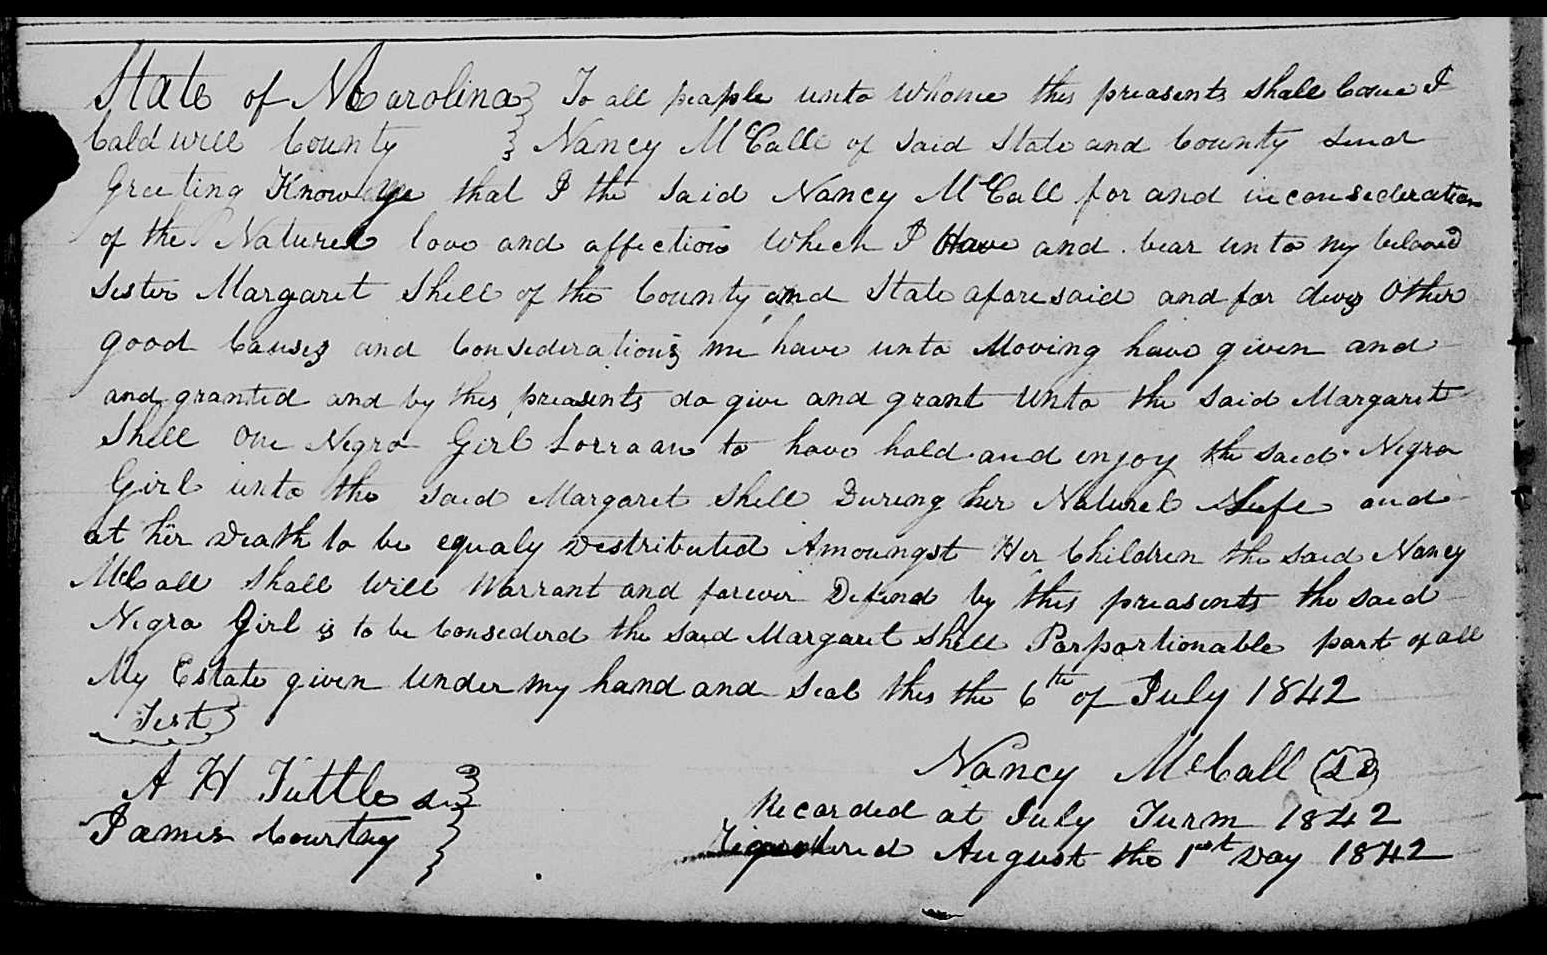 State of N Carolina } To all peaple unto whome this preasents shall Come I
Caldwell County } Nancy McCall of said State and County send
Greeting Know ye that I the said Nancy McCall for and in consideration
of the Naturel love and affection which I Have and bear unto my beloved
sister Margaret Shell of the County and State aforesaid and for divers Other
good Causes and Considerations me have unto Moving have given and
and granted and by this preasents do give and grant unto the said Margaret
Shell one Negro Girl Lorraan to have hold and enjoy the said Negro
Girl unto the said Margaret Shell During her Naturel Life and
at her Death to be equaly Destributed Amoungst Her Children the said Nancy
McCall shall will Warrant and forever Defend by this preasents the said
Negro Girl is to be Considerd the said Margaret Shell Porportionable part of all
My Estate given under my hand and Seal this the 6th of July 1842
Test }
A H Tuttle }
James Courtny }
Nancy McCall
Recorded at July Turm 1842
August the 1st Day 1842